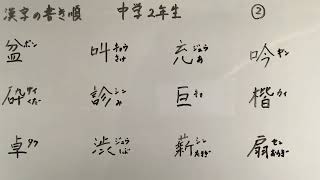 漢字の書き順 中学2年生 ②
盆 ボン 叫 キョウ さけ 充 ジュウ あ 吟 ギン
砕 サイ くだ 診 シン み 巨 キョ 楷 カイ
卓 タク 渋 ジュウ しぶ 薪 シン たきぎ 扇 セン おうぎ